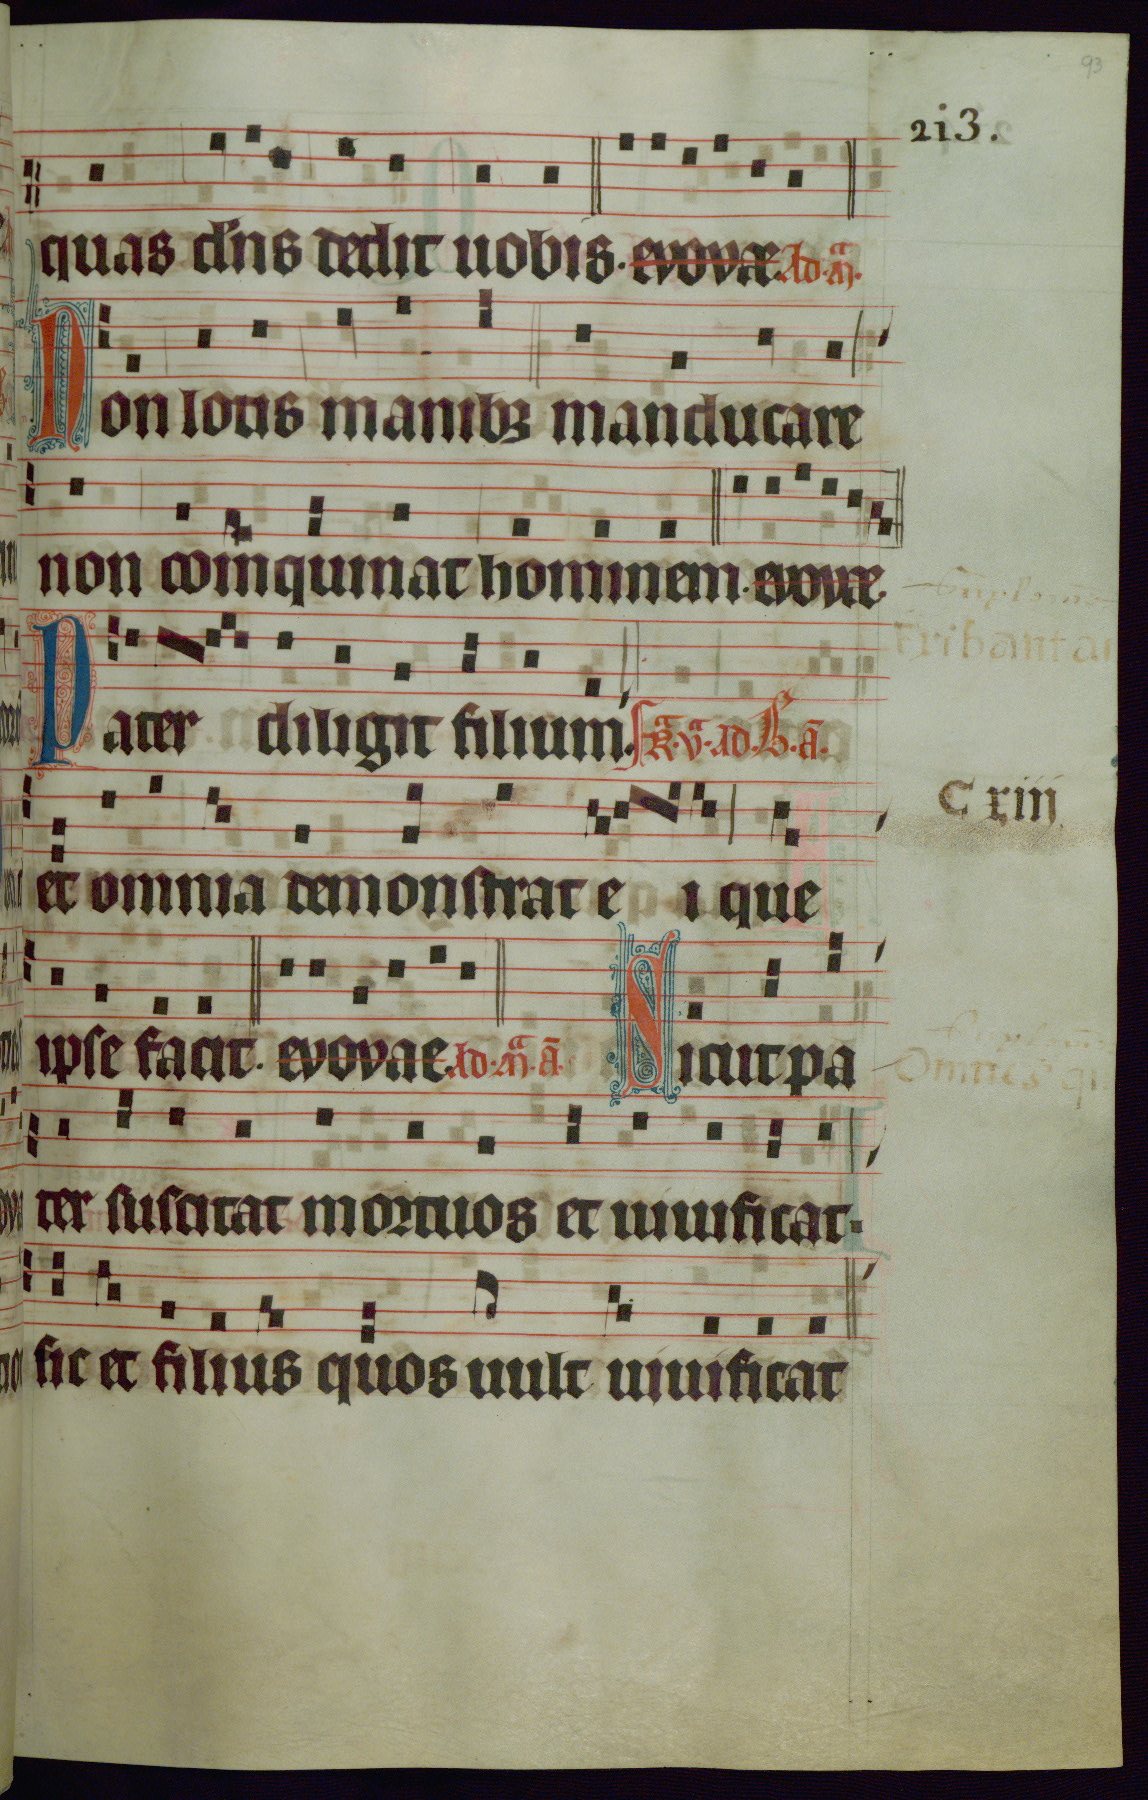 93
213.
quas dn̄s dedit uobis. evovae. Ad. m̄.
Non lotis manibꝫ manducare
non coinquinat hominem. evovae.
Pater diligit filium. ad. B. a.
Cxiii
et omnia demonstrat e i que
ipse facit. evovae. Ad. m̄. ā. Sicut pa
ter suscitat mortuos et uiuificat
sic et filius quos uult uiuificat